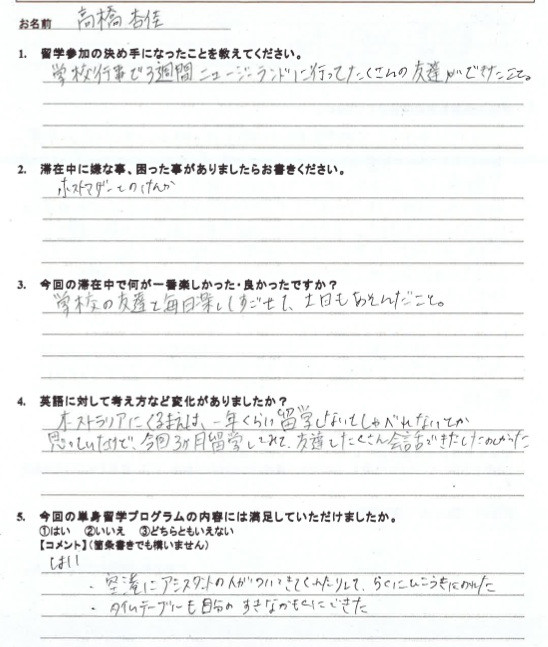 お名前 高橋杏佳
1. 留学参加の決め手になったことを教えてください。
学校行事で3週間ニュージーランドに行ってたくさんの友達ができたこと。
2. 滞在中に嫌な事、困った事がありましたらお書きください。
ホストマザーとのけんか
3. 今回の滞在中で何が一番楽しかった・良かったですか？
学校の友達と毎日楽しくすごせて、土日もあそんだこと。
4. 英語に対して考え方など変化がありましたか？
オーストラリアにくるまえは、一年くらい留学しないとしゃべれないとか
思っていたけど、今回3ヶ月留学してみて、友達とたくさん会話できたしたのしかった
5. 今回の単身留学プログラムの内容には満足していただけましたか。
①はい ②いいえ ③どちらともいえない
【コメント】（箇条書きでも構いません）
はい
・空港にアシスタントの人がついてきてくれたりして、らくにひこうきにのれた
・タイムテーブルも自分のすきなかもくにできた